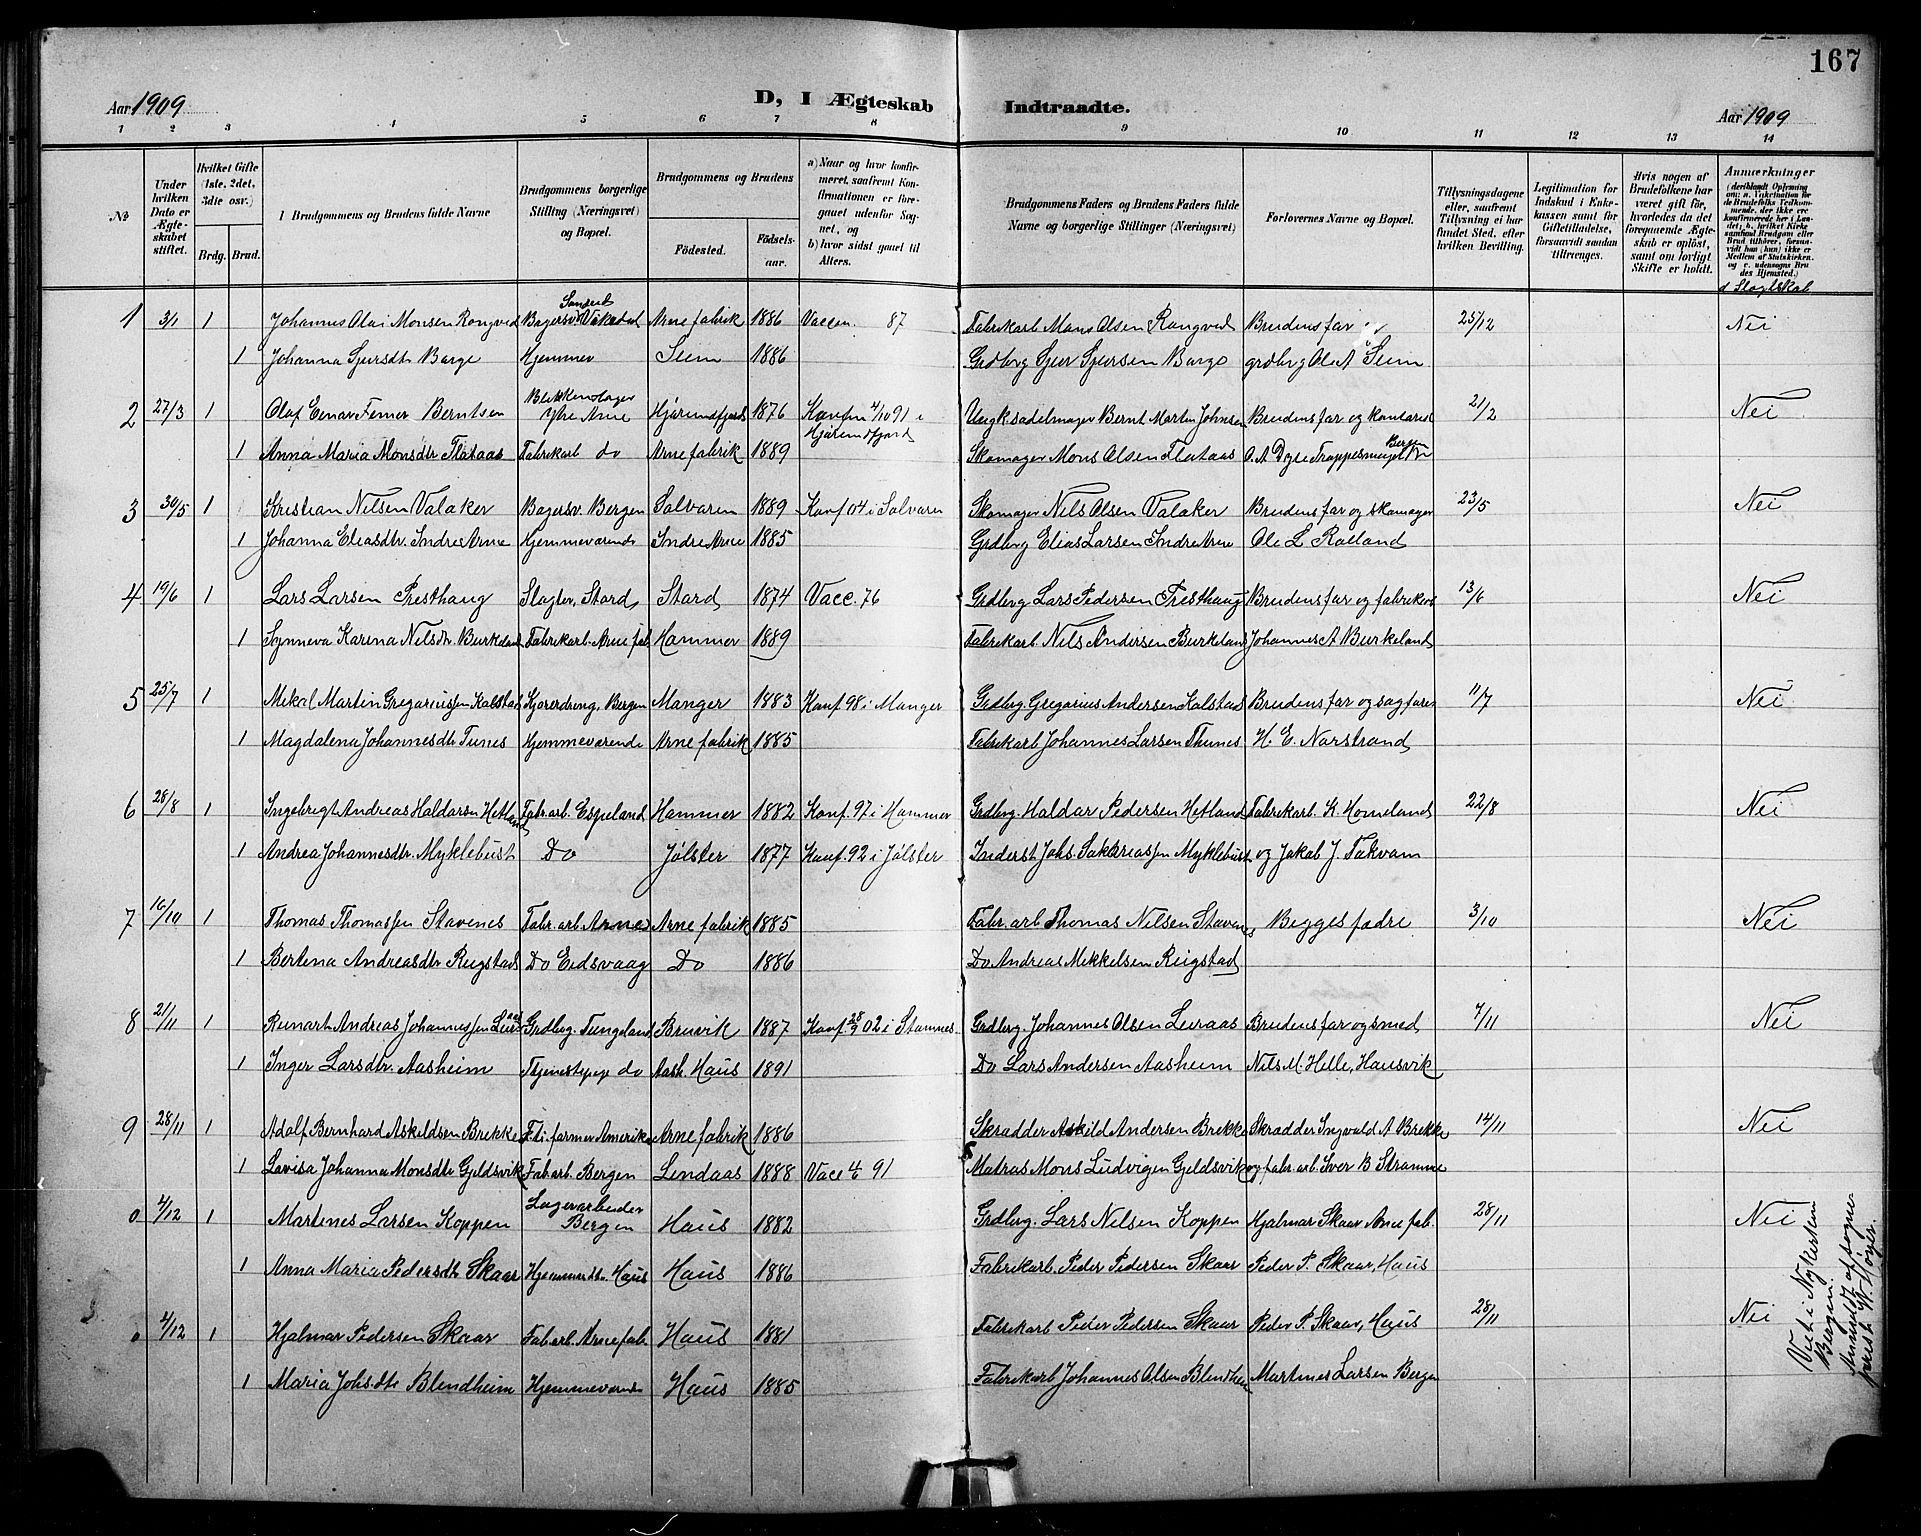 167
Aar 1909
D, I Ægteskab Indtraadte.
Aar 1909
1 2 3 4 5 6 7 8 9 10 11 12 13 14
No
Under hvilken Dato er Ægteskabet stiftet.
Hvilket Gifte (1ste, 2det, 3die osv.)
Brdg. Brud.
Brudgommens og Brudens fulde Navne
Brudgommens borgerlige Stilling (Næringsvei) og Bopæl.
Brudgommens og Brudens
Fødested.
Fødselsaar.
a) Naar og hvor konfirmeret, saafremt Konfirmationen er foregaaet udenfor Sognet, og
b) hvor sidst gaaet til Alters.
Brudgommens Faders og Brudens Faders fulde Navne og borgerlige Stillinger (Næringsvei)
Forlovernes Navne og Bopæl.
Tillysningsdagene eller, saafremt Tillysning ei har fundet Sted, efter hvilken Bevilling.
Legitimation for Indskud i Enkekassen samt for Giftetilladelse, forsaavidt saadan tiltrænges.
Hvis nogen af Brudefolkene har været gift før, hvorledes da det foregaaende Ægteskab er opløst, samt om lovligt Skifte er holdt.
Anmærkninger
(deriblandt Oplysning om: a. Vakcination for de Brudefolks Vedkommende, der ikke ere konfirmerede her i Landet; b. hvilket Kirkesamfund Brudgom eller Brud tilhører, forsaavidt han (hun) ikke er Medlem af Statskirken, og c. udensogns Brudes Hjemsted.)
d Slegtskab
1 3/1 1 Johannes Olai Monsen Rongved Bagersv. Vaksdal Arne fabrik 1886 Vaccen. 87 Fabrikarb Mons Olsen Rongved Brudens far og 25/12 Nei
1 Johanna Sjursdtr Barge Hjemmev Seim 1886 Grdbrg Sjur Sjursen Barge grdbrg Ole A Seim
2 27/3 1 Olaf Einar Femer Berntsen Blikkenslager Ytre Arne Hjørundfjord 1876 Konfm 4/10 91 i Hjørundfjord Bernt Martin Johnsen Brudens far og kontorist 21/2 Nei
1 Anna Maria Monsdtr Flataas Fabrikarb do Arne fabrik 1889 Skomager Mons Olsen Flataas
3 30/5 1 Kristian Nilsen Valaker Bagersv. Bergen Solvorn 1889 Konf 04 i Solvorn Skomager Nils Olsen Valaker Brudens far og skomager 23/5 Nei
1 Johanna Eliasdtr. Indre Arne Hjemmeværende Indre Arne 1885 Grdbrg Elias Larsen Indre Arne Ole L Rolland
4 19/6 1 Lars Larsen Presthaug Slagter, Stord Stord 1874 Vacc. 76 Grdbrg Lars Pedersen Presthaug Brudens far og fabrikarb 13/6 Nei
1 Synneva Karina Nilsdtr Burkeland Fabrikarb. Arne fab Hammer 1889 Fabrikarb. Nils Andersen Burkeland Johannes A Burkeland
5 25/7 1 Mikal Martin Gregoriussen Kalstad Kjøredreng, Bergen Manger 1883 Konf 98 i Manger Grdbrg. Gregorius Andersen Kalstad Brudens far og sagfører 11/7 Nei
1 Magdalena Johannesdtr Tunes Hjemmeværende Arne fabrik 1885 Fabrikarb Johannes Larsen Thunes H. E. Norstrand
6 28/8 1 Ingebrigt Andreas Haldorsen Hetland Fabr. arb. Espeland Hammer 1882 Konf. 97 i Hammer Grdbrg. Haldor Pedersen Hetland Fabrikarb. K. Homeland 22/8 Nei
1 Andrea Johannesdtr. Myklebust Do Jølster 1877 Konf. 92 i Jølster Inderst Johs. Sakkariassen Myklebust og Jakob J. Takvam
7 16/10 1 Thomas Thomassen Stavenes Fabr. arb. Arne Arne fabrik 1885 Fabr. arb Thomas Nilsen Stavenes Begges fedre 3/10 Nei
1 Bertina Andreasdtr Reigstad Do Eidsvaag Do 1886 Do Andreas Mikkelsen Reigstad
8 21/11 1 Reinart Andreas Johannessen Leiraas Grdbrg. Tungeland Bruvik 1887 Konf 28/9 02 i Stamnes Grdbrg. Johannes Olsen Leiraas Brudens far og smed 7/11 Nei
1 Inger Larsdtr. Aasheim Tjenestepige do Aash. Haus 1891 Do Lars Andersen Aasheim Nils M. Helle, Hausvik
9 28/11 1 Adolf Bernhard Askildsen Brekke farmer Amerika Arne fabrik 1886 Skrædder Askild Andersen Brekke Skrædder Ingvald A Brekke 14/11 Nei
1 Lovisa Johanna Monsdtr Gjeldsvik Fab. arb. Bergen Lindaas 1888 Vacc 4/6 91 Matros Mons Ludvigsen Gjeldsvik og fabr. arb. Iver B Stramme
0 4/12 1 Martines Larsen Koppen Lagerarbeider Bergen Haus 1882 Grdbrg. Lars Nilsen Koppen Hjalmar Skaar Arne fab. 28/11 Nei
1 Anna Maria Pedersdtr Skaar Hjemmevdr. Haus Haus 1886 Fabrikarb. Peder Pedersen Skaar Peder P. Skaar, Haus
0 4/12 1 Hjalmar Pedersen Skaar Fab. arb. Arne fab. Haus 1881 Fabrikarb Peder Pedersen Skaar Peder P. Skaar, Haus 28/11 Nei
1 Maria Johsdtr Blendheim Hjemmeværende Haus 1885 Fabrikarb Johannes Olsen Blindheim Martines Larsen Bergen
Viet i Nykirken
Bergen.
Anmeldt af sogne
prest W. Høyer.